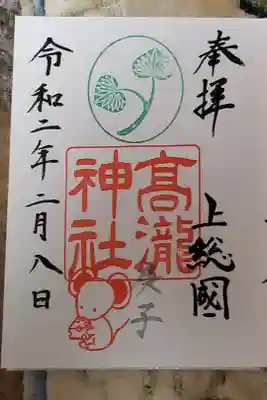 奉拝
上総國
高瀧
神社
子
令和二年二月八日